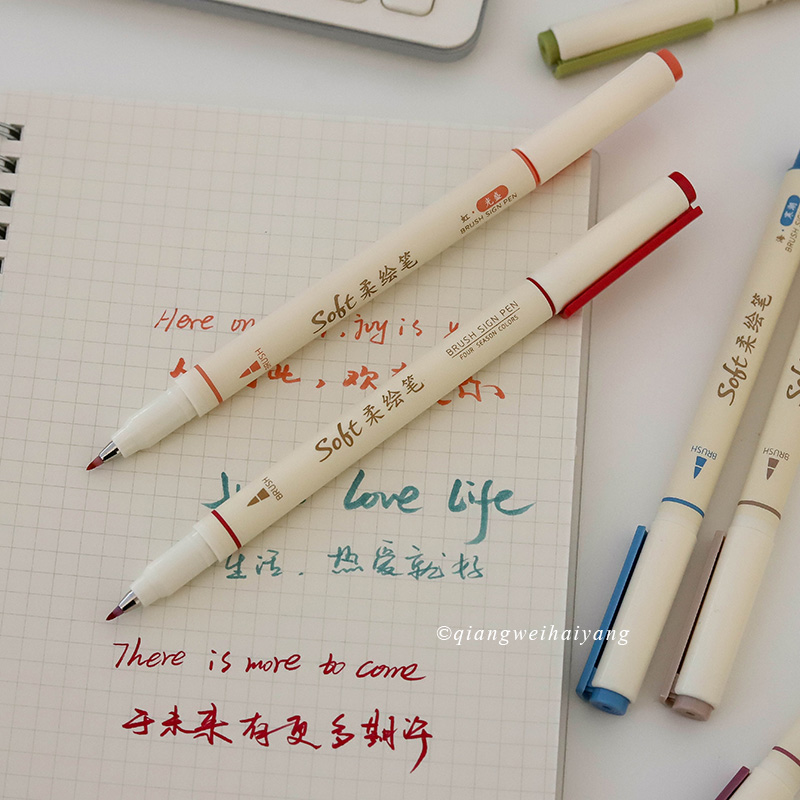 虹·
BRUSH SIGN PEN
Soft 柔绘笔
BRUSH
BRUSH SIGN PEN
FOUR SEASON COLORS
Soft 柔绘笔
BRUSH
Soft 柔绘笔
BRUSH
BRUSH SIGN
海·
Soft
BRUSH
Here joy is
此，欢
Love Life
生活，热爱就好
©qiangweihaiyang
There is more to come
于未来有更多期许